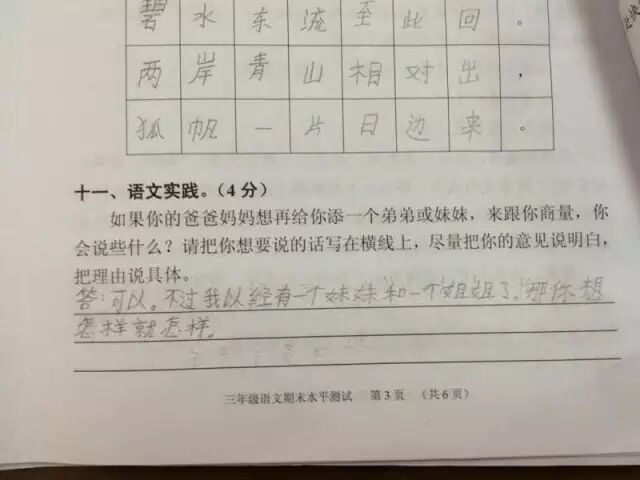 碧水东流至此回。
两岸青山相对出，
孤帆一片日边来。
十一、语文实践。（4分）
如果你的爸爸妈妈想再给你添一个弟弟或妹妹，来跟你商量，你
会说些什么？请把你想要说的话写在横线上，尽量把你的意见说明白，
把理由说具体。
答：可以。不过我以经有一个妹妹和一个姐姐了。那你想
怎样就怎样。
三年级语文期末水平测试 第3页 （共6页）